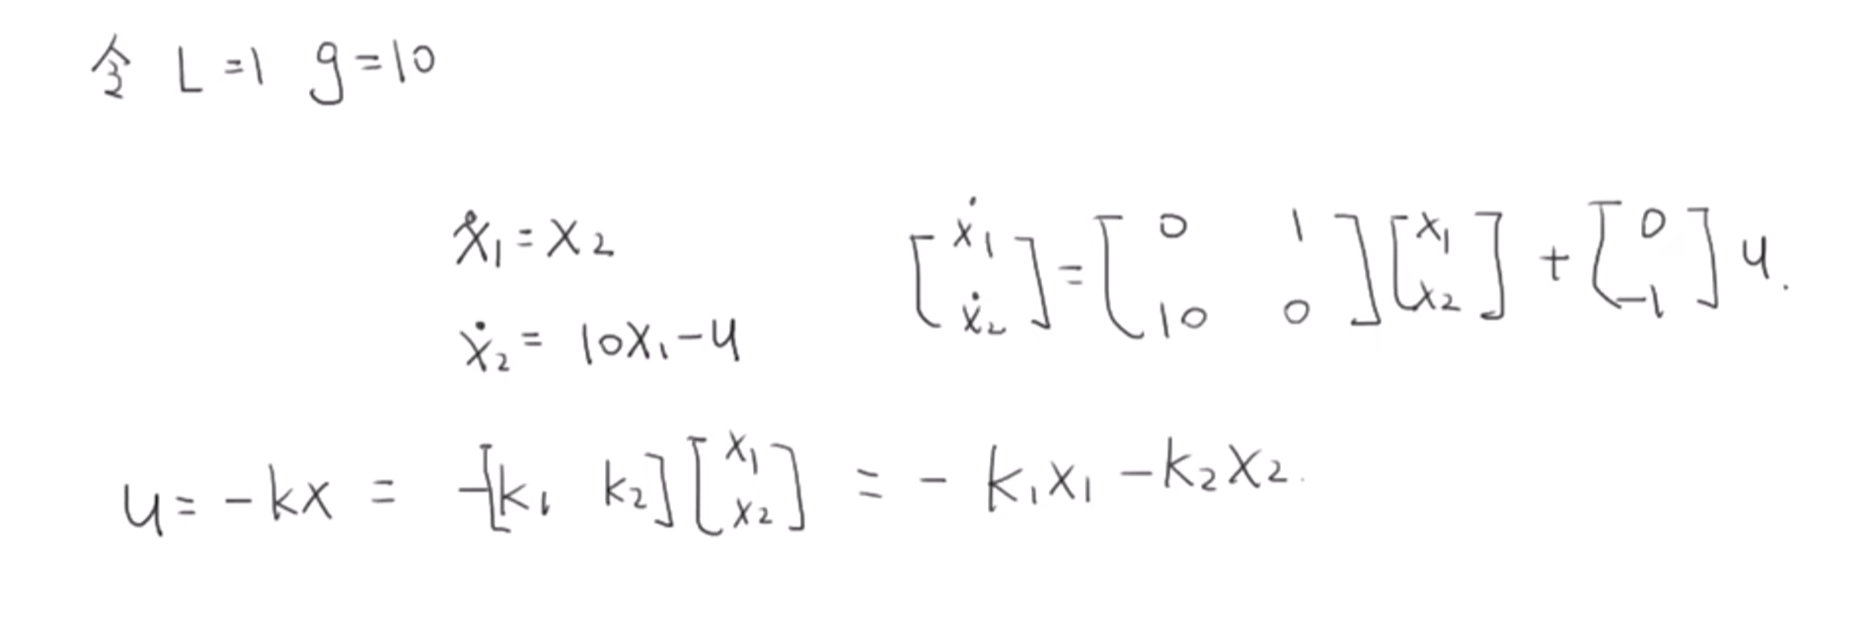 令 L=1 g=10
ẋ₁=x₂
[ẋ₁ ẋ₂]=[0 1 10 0][x₁ x₂]+[0 -1]u.
ẋ₂=10x₁-u
u=-kx=-[k₁ k₂][x₁ x₂]=-k₁x₁-k₂x₂.